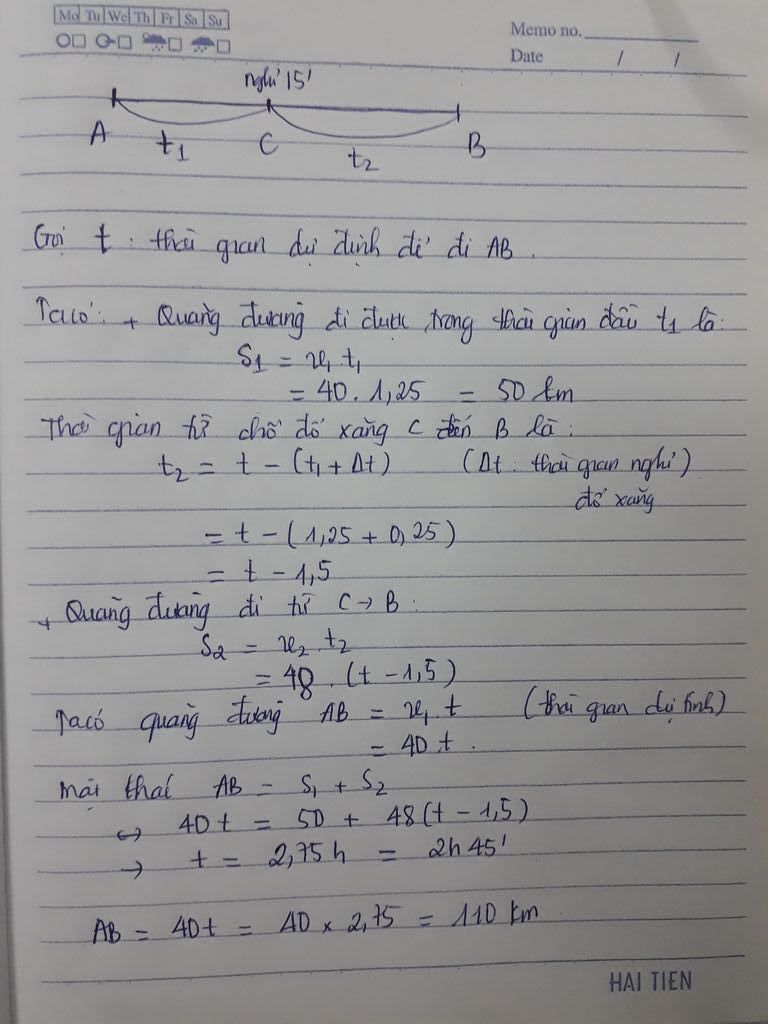 Mo Tu We Th Fr Sa Su
Memo no.
Date / /
nghỉ 15'
A t1 C t2 B
Gọi t : thời gian dự định để đi AB.
Ta có: + Quãng đường đi được trong thời gian đầu t1 là:
S1 = v1 t1
= 40 . 1,25 = 50 km
Thời gian từ chỗ đổ xăng C đến B là:
t2 = t - (t1 + Δt) (Δt : thời gian nghỉ)
đổ xăng
= t - (1,25 + 0,25)
= t - 1,5
+ Quãng đường đi từ C → B :
S2 = v2 . t2
= 48 . (t - 1,5)
Ta có quãng đường AB = v1 t (thời gian dự tính)
= 40 t .
Mặt khác AB = S1 + S2
↔ 40t = 50 + 48(t - 1,5)
→ t = 2,75 h = 2h 45'
AB = 40t = 40 x 2,75 = 110 km
HAI TIEN